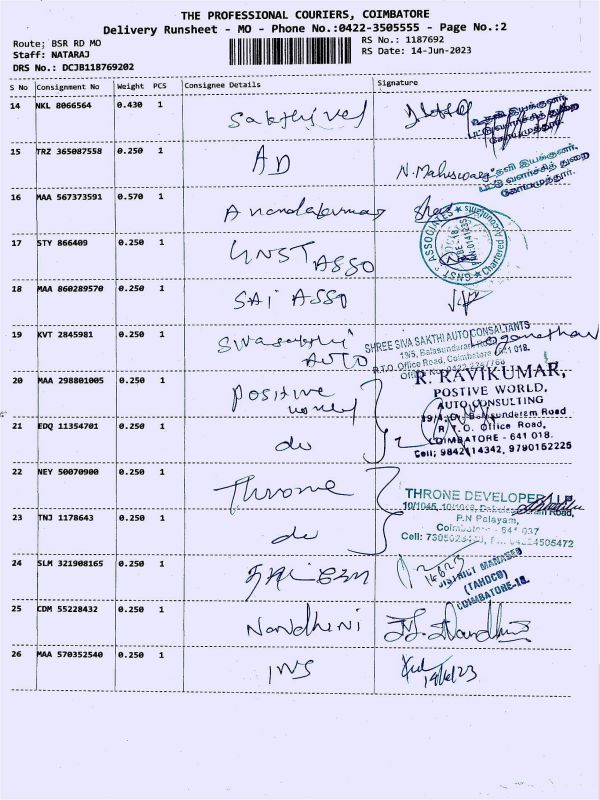 THE PROFESSIONAL COURIERS, COIMBATORE
Delivery Runsheet - MO - Phone No.:0422-3505555 - Page No.:2
Route; BSR RD MO
RS No.: 1187692
Staff: NATARAJ
RS Date: 14-Jun-2023
DRS No.: DCJB118769202
S No Consignment No Weight PCS Consignee Details Signature
14 NKL 8066564 0.430 1 Sakthivel
15 TRZ 365087558 0.250 1 AD N. Maheswari
16 MAA 567373591 0.570 1 Anandakumar
17 STY 866409 0.250 1 GNST ASSO
GNST ASSOCIATES Chartered Accountants
18 MAA 860289570 0.250 1 SAI ASSO
19 KVT 2845981 0.250 1 Sivasakthi AUTO Loganathan
SHREE SIVA SAKTHI AUTO CONSALTANTS
19/5, Balasundaram
R.T.O. Office Road, Coimbatore 641 018.
20 MAA 298801005 0.250 1 Positive world
R. RAVIKUMAR,
POSTIVE WORLD,
AUTO CONSULTING
Balasunderam Road
R.T.O. Office Road,
COIMBATORE - 641 018.
Cell; 9842114342, 9790152225
21 EDQ 11354701 0.250 1 do
22 NEY 50070900 0.250 1 Throne
THRONE DEVELOPER LLP
Road,
P.N Palayam,
Coimbatore - 641 037
23 TNJ 1178643 0.250 1 do
24 SLM 321908165 0.250 1
14/6/23
DISTRICT MANAGER
(TAHOCO)
COIMBATORE-18.
25 CDM 55228432 0.250 1 Nandhini
26 MAA 570352540 0.250 1 INS 14/6/23